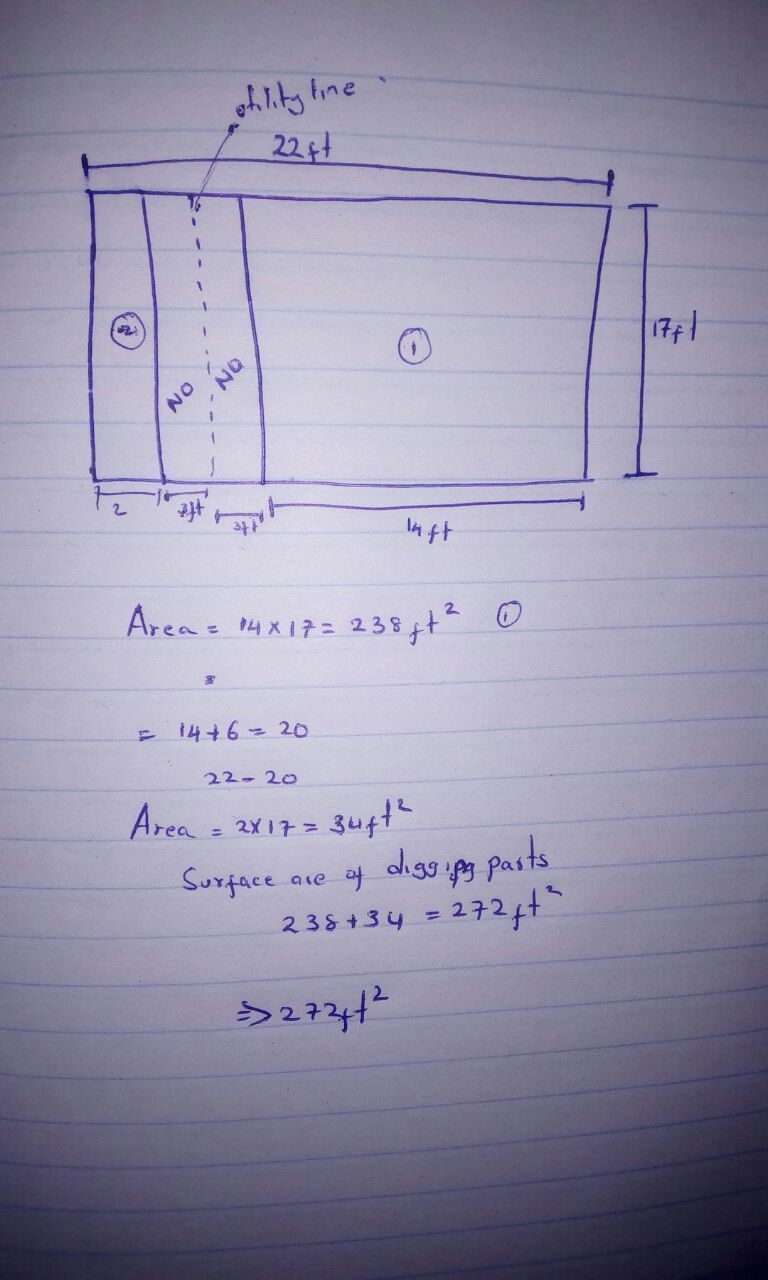 utility line
22ft
2
NO
NO
1
17ft
2
3ft
3ft
14ft
Area = 14x17 = 238ft² 1
=
= 14+6 = 20
22-20
Area = 2x17 = 34ft²
Surface are of digging parts
238+34 = 272ft²
⇒272ft²